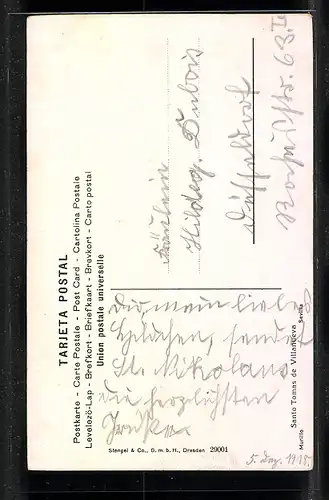 TARJETA POSTAL
Postkarte - Carte Postale - Post Card - Cartolina Postale
Levelezö-Lap - Brefkort - Briefkaart - Brevkort - Carto postal
Union postale universelle
Fräulein
Hildeg. Dubois
Düsseldorf
Rochusstr. 63 I
Dir, mein liebes
Hildchen, sendet
St. Nikolaus
die herzlichsten
Grüße.
Stengel & Co., G. m. b. H., Dresden 29001
Santo Tomas de Villanueva
Murillo Sevilla
5. Dez. 1915